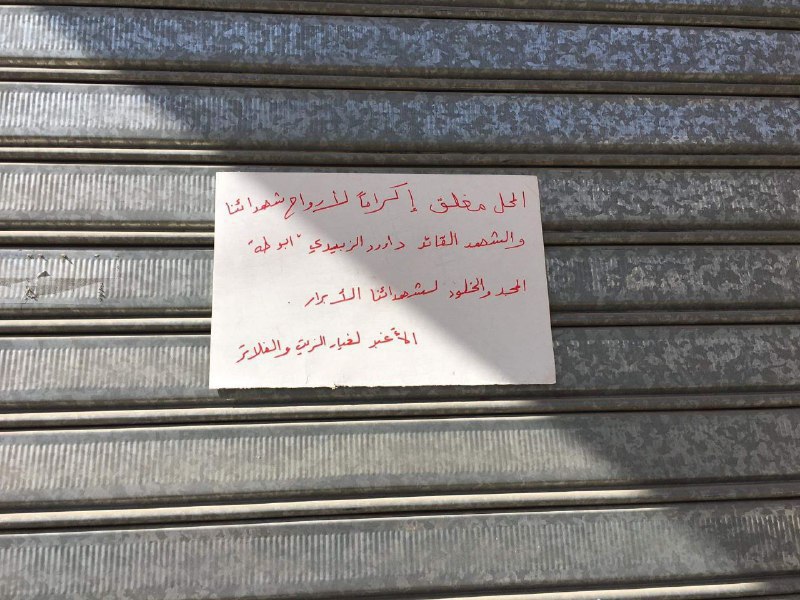 المحل مغلق إكراماً لأرواح شهدائنا
والشهيد القائد داوود الزبيدي "ابو طه"
المجد والخلود لشهدائنا الأبرار .
لغيار الزيت والفلاتر